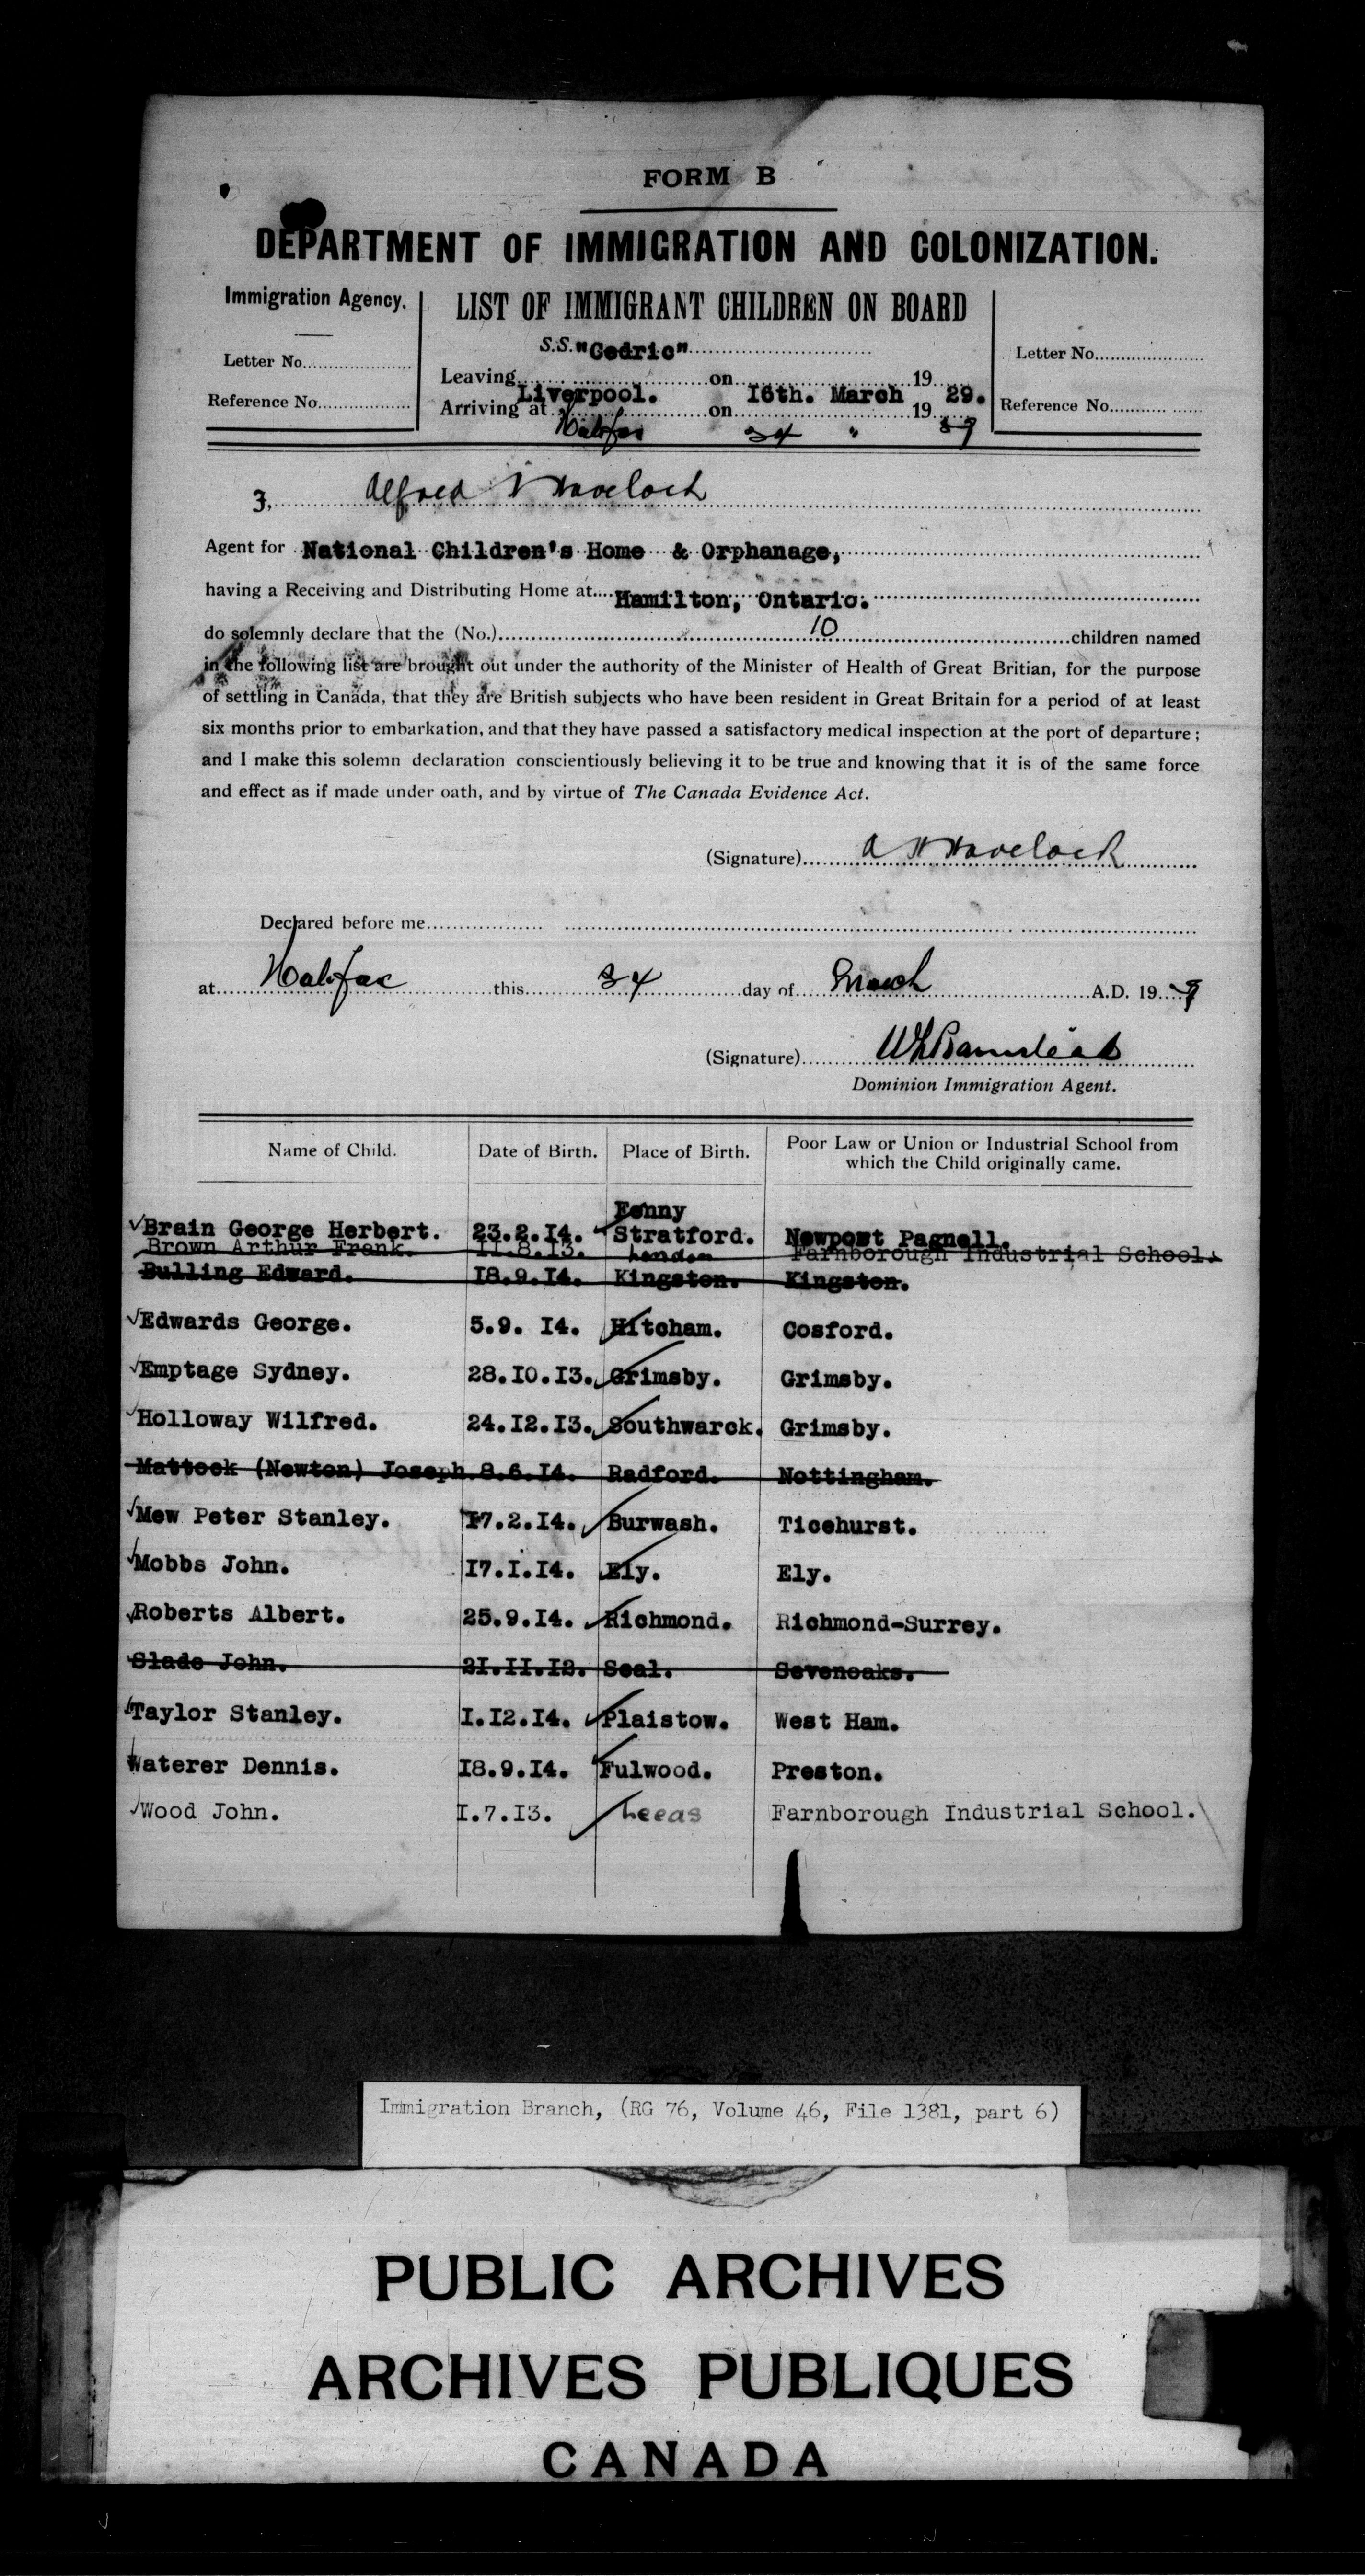 FORM B
DEPARTMENT OF IMMIGRATION AND COLONIZATION.
Immigration Agency.
Letter No.
Reference No.
LIST OF IMMIGRANT CHILDREN ON BOARD
S.S. "Cedric"
Leaving Liverpool. on 16th. March 1929.
Arriving at Halifax on 24 " 19 29
Letter No.
Reference No.
I, Alfred W Havelock
Agent for National Children's Home & Orphanage,
having a Receiving and Distributing Home at Hamilton, Ontario.
do solemnly declare that the (No.) 10 children named
in the following list are brought out under the authority of the Minister of Health of Great Britian, for the purpose
of settling in Canada, that they are British subjects who have been resident in Great Britain for a period of at least
six months prior to embarkation, and that they have passed a satisfactory medical inspection at the port of departure;
and I make this solemn declaration conscientiously believing it to be true and knowing that it is of the same force
and effect as if made under oath, and by virtue of The Canada Evidence Act.
(Signature) A W Havelock
Declared before me
at Halifax this 24 day of March A.D. 1929
(Signature) W L Barnstead
Dominion Immigration Agent.
Name of Child. Date of Birth. Place of Birth. Poor Law or Union or Industrial School from which the Child originally came.
Brain George Herbert. 23.2.14. Fenny Stratford. Newpost Pagnell.
Brown Arthur Frank. 11.8.13. London Farnborough Industrial School.
Bulling Edward. 18.9.14. Kingston. Kingston.
Edwards George. 5.9. 14. Hitcham. Cosford.
Emptage Sydney. 28.10.13. Grimsby. Grimsby.
Holloway Wilfred. 24.12.13. Southwarck. Grimsby.
Mattock (Newton) Joseph 8.6.14. Radford. Nottingham.
Mew Peter Stanley. 17.2.14. Burwash. Ticehurst.
Mobbs John. 17.1.14. Ely. Ely.
Roberts Albert. 25.9.14. Richmond. Richmond-Surrey.
Slade John. 21.11.12. Seal. Sevenoaks.
Taylor Stanley. 1.12.14. Plaistow. West Ham.
Waterer Dennis. 18.9.14. Fulwood. Preston.
Wood John. 1.7.13. Leeds Farnborough Industrial School.
Immigration Branch, (RG 76, Volume 46, File 1381, part 6)
PUBLIC ARCHIVES
ARCHIVES PUBLIQUES
CANADA